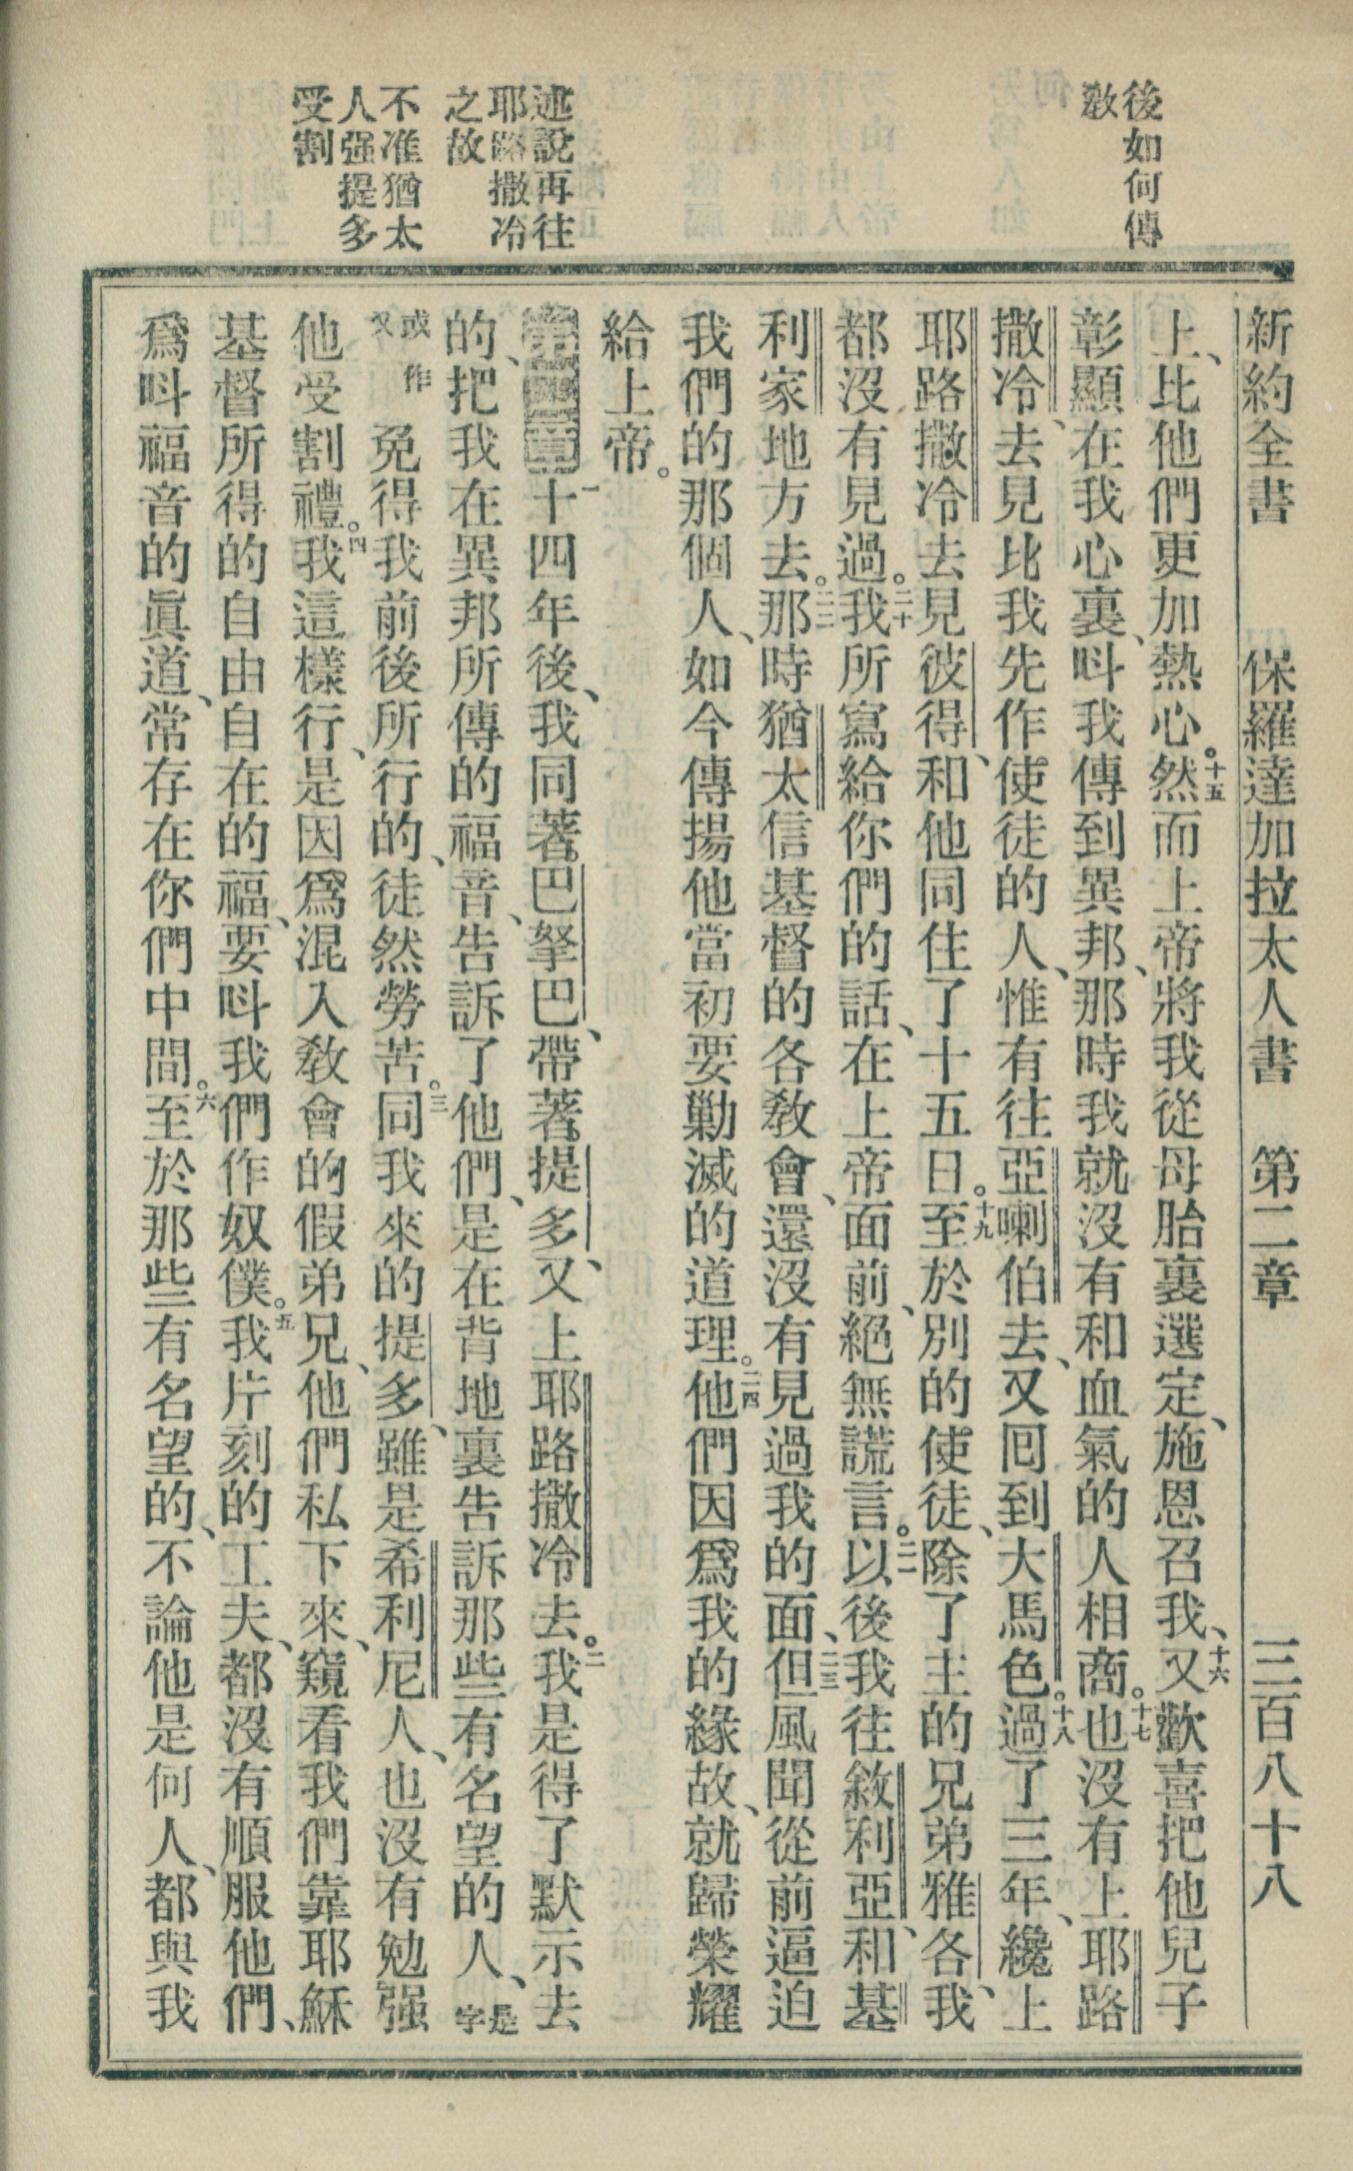 後如何傳
教
述說再往
耶路撒冷
之故
不准猶太
人强提多
受割
新約全書　保羅達加拉太人書　第二章　三百八十八
上、比他們更加熱心。十五然而上帝將我從母胎裏選定、施恩召我、十六又歡喜把他兒子
彰顯在我心裏、呌我傳到異邦、那時我就沒有和血氣的人相商。十七也沒有上耶路
撒冷、去見比我先作使徒的人、惟有往亞喇伯去、又囘到大馬色。十八過了三年、纔上
耶路撒冷去見彼得、和他同住了十五日。十九至於別的使徒、除了主的兄弟雅各、我
都沒有見過。二十我所寫給你們的話、在上帝面前、絕無謊言。二一以後我往敘利亞、和基
利家地方去。二二那時猶太信基督的各教會、還沒有見過我的面、二三但風聞從前逼迫
我們的那個人、如今傳揚他當初要勦滅的道理。二四他們因爲我的緣故、就歸榮耀
給上帝。
第二章一十四年後、我同著巴拏巴、帶著提多、又上耶路撒冷去。二我是得了默示去
的、把我在異邦所傳的福音、告訴了他們、是在背地裏告訴那些有名望的人、是字
或作又免得我前後所行的、徒然勞苦。三同我來的提多、雖是希利尼人、也沒有勉强
他受割禮。四我這樣行、是因爲混入教會的假弟兄、他們私下來、窺看我們靠耶穌
基督所得的自由自在的福、要呌我們作奴僕。五我片刻的工夫、都沒有順服他們、
爲呌福音的眞道、常存在你們中間。六至於那些有名望的、不論他是何人、都與我